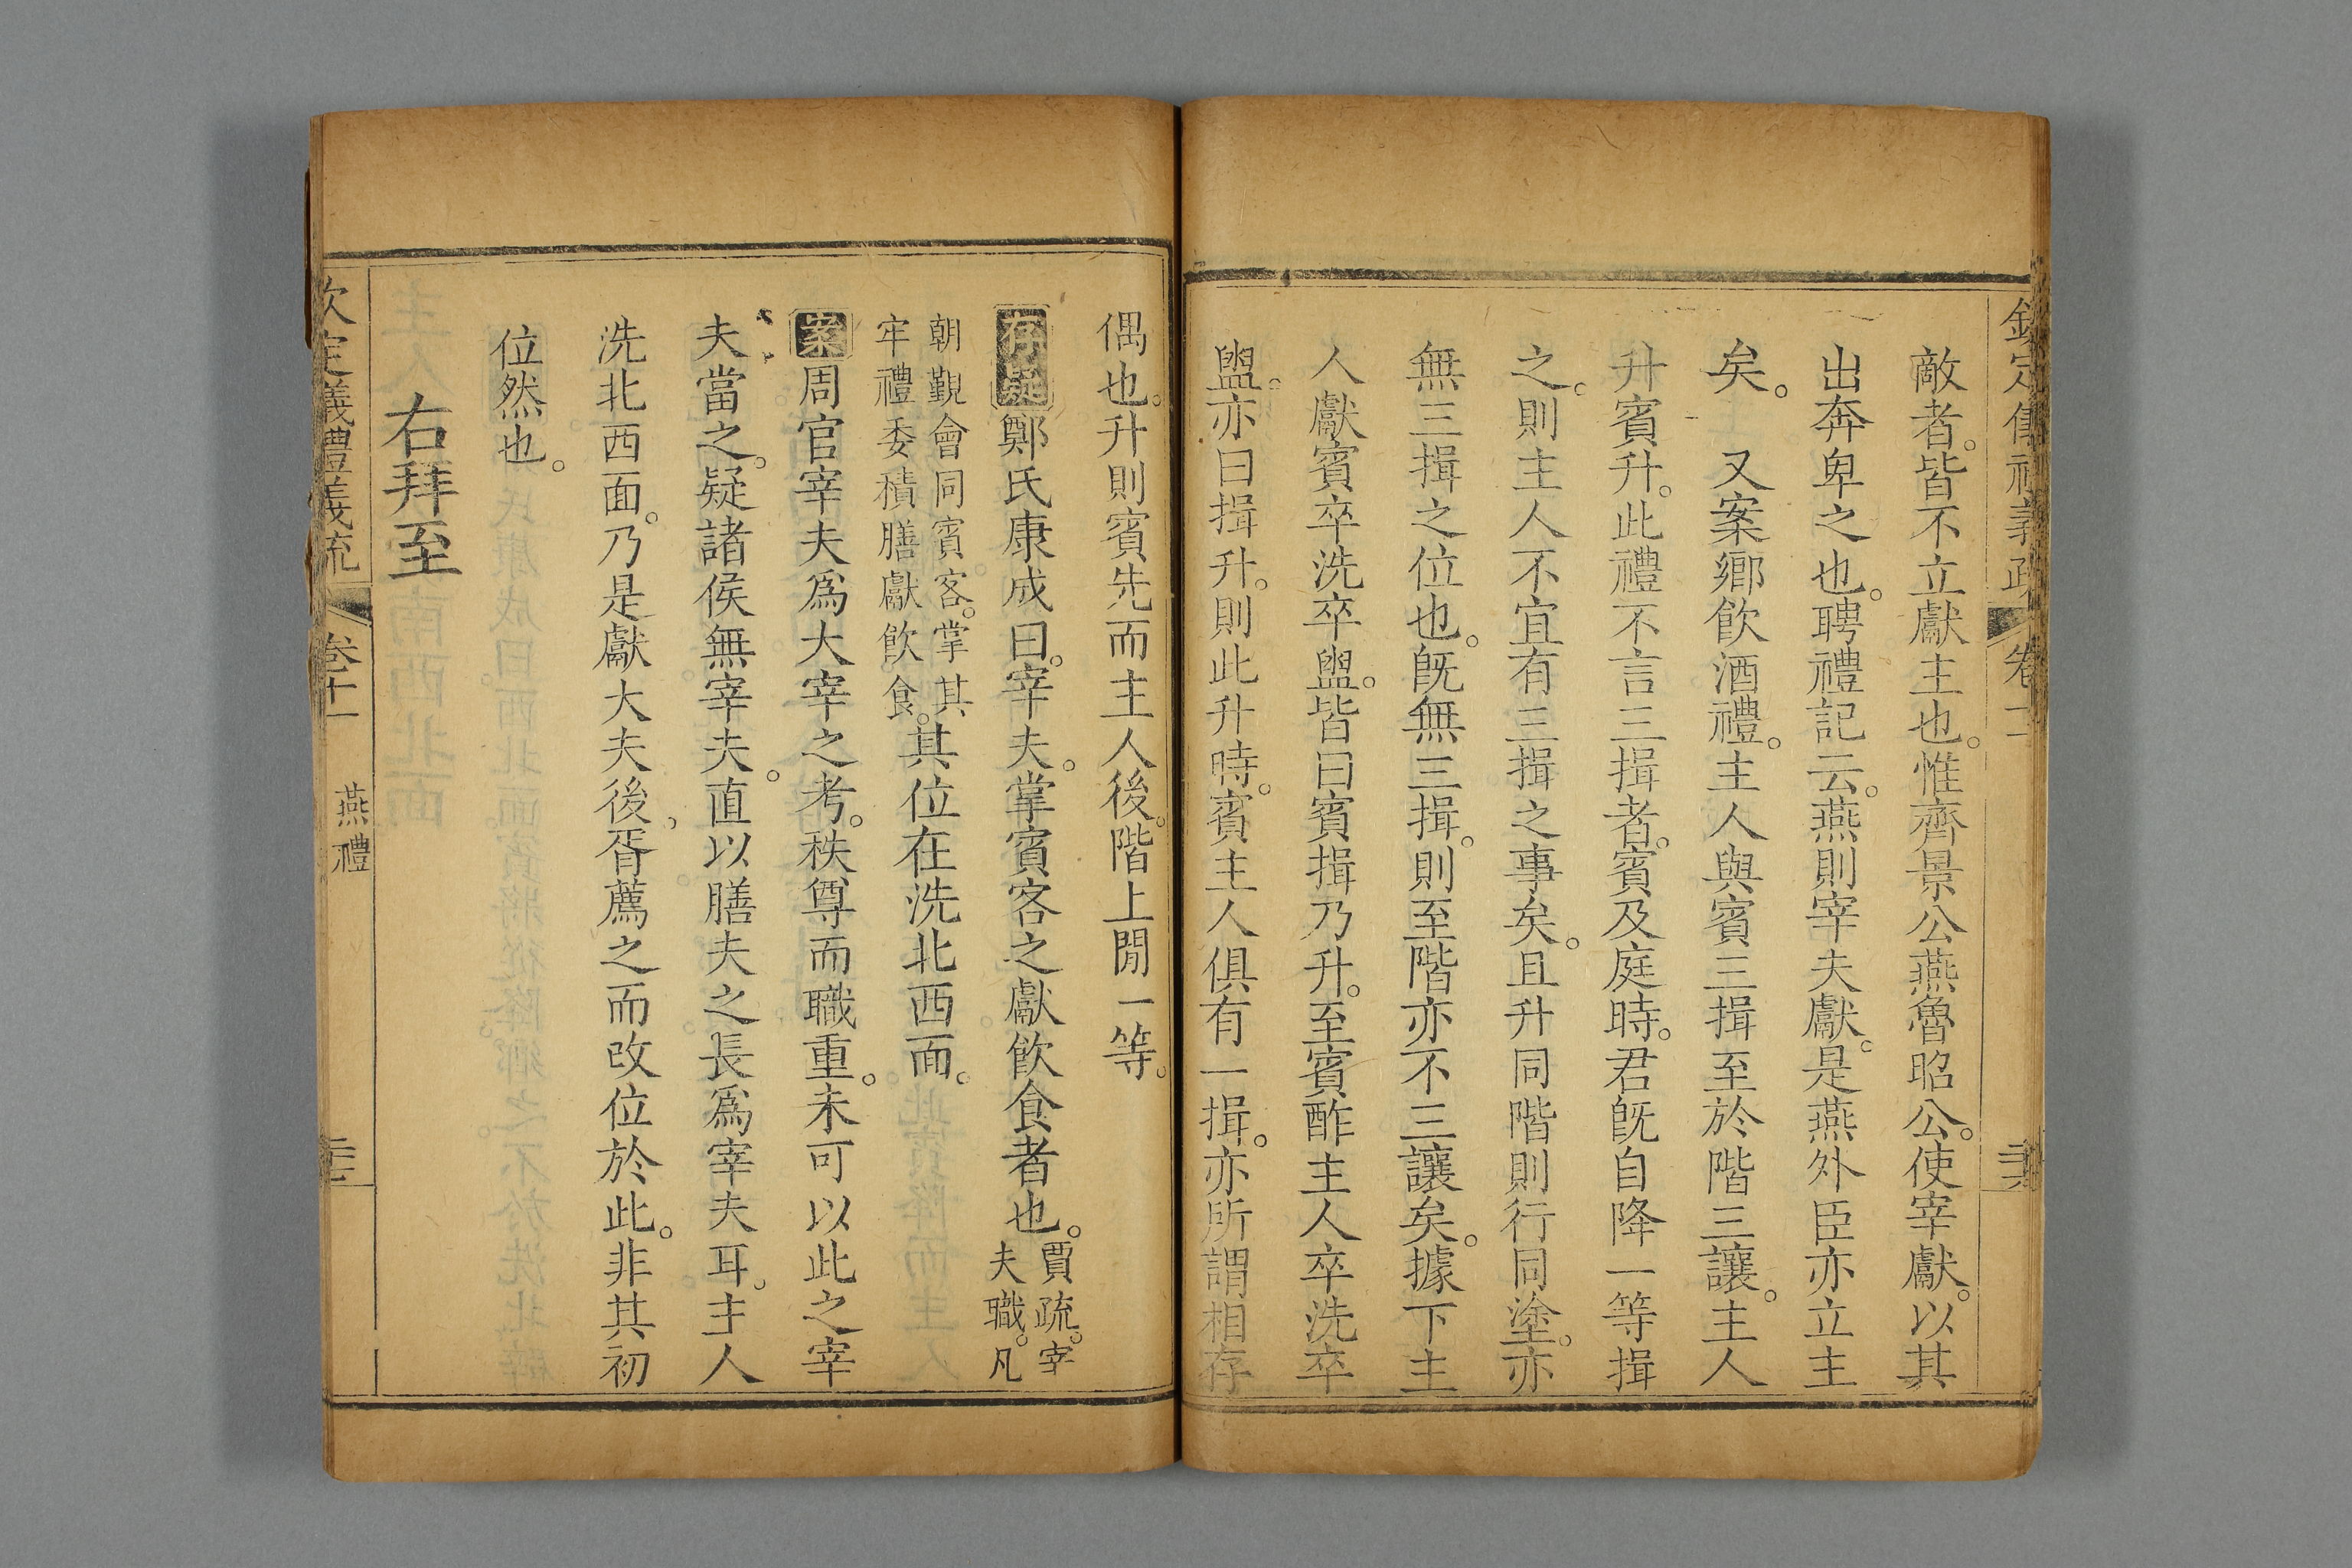 欽定儀禮義疏 卷十一 三六
敵者。皆不立獻主也。惟齊景公燕魯昭公。使宰獻。以其
出奔卑之也。聘禮記云。燕則宰夫獻。是燕外臣亦立主
矣。 又案鄉飲酒禮。主人與賓三揖至於階三讓。主人
升賓升。此禮不言三揖者。賓及庭時。君旣自降一等揖
之。則主人不宜有三揖之事矣。且升同階則行同塗。亦
無三揖之位也。旣無三揖。則至階亦不三讓矣。據下主
人獻賓卒洗卒盥。皆曰賓揖乃升。至賓酢主人卒洗卒
盥。亦曰揖升。則此升時。賓主人俱有一揖。亦所謂相存
偶也。升則賓先而主人後。階上閒一等。
存疑鄭氏康成曰。宰夫。掌賓客之獻飲食者也。賈疏。宰夫職。凡
朝覲會同賓客。掌其牢禮委積膳獻飲食。其位在洗北西面。
案周官宰夫為大宰之考。秩尊而職重。未可以此之宰
夫當之。疑諸侯無宰夫。直以膳夫之長為宰夫耳。主人
洗北西面。乃是獻大夫後，胥薦之而改位於此。非其初
位然也。
右拜至
欽定儀禮義疏 卷十一 燕禮